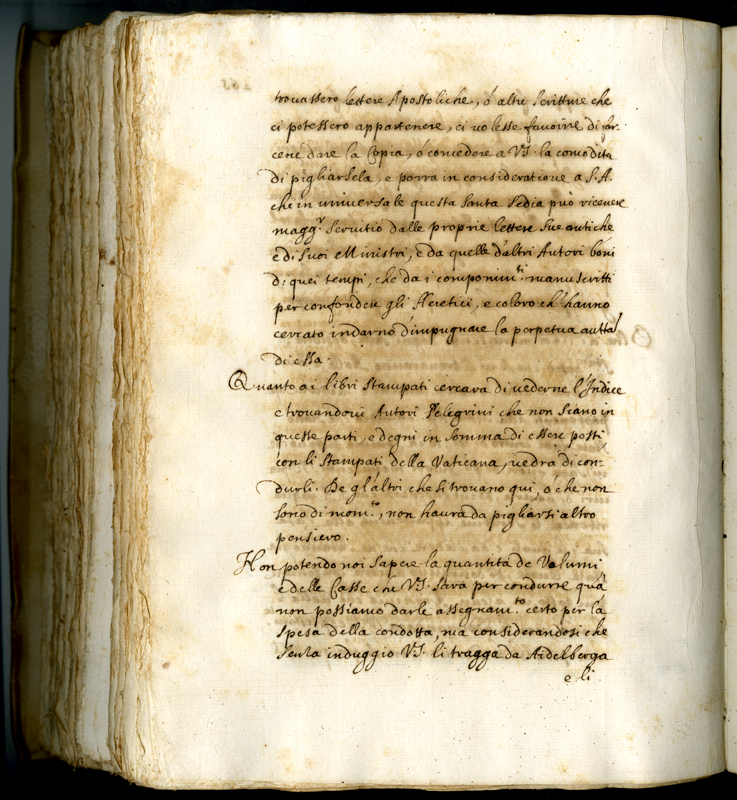 trouassero lettere Apostoliche, ó altre scritture che
ci potessero appartenere, ci uolesse fauorire di far-
cene dare la Copia, ó concedere a VS. la comodita
di pigliarsela, e porra in consideratione a S.A.
che in uniuersale questa Santa Sedia può riceuere
magg.r seruitio dalle proprie lettere sue antiche
e di suoi Ministri, e da quelle d'altri Autori boni
di quei tempi, che da i componim.ti manuscritti
per confondere gli Heretici, e coloro ch'hanno
cercato indarno d'impugnare la perpetua autta
di essa.
Quanto ai libri stampati cercara di uederne l'Indice
e trouandoui Autori Pelegrini che non siano in
queste parti, e degni in somma di essere posti
con li stampati della Vaticana, uedrà di con-
durli. De gl'altri che si trouano qui, ó che non
sono di mom.to, non haura da pigliarsi altro
pensiero.
Non potendo noi sapere la quantita de Volumi
e delle Casse che VS. sara per condurre quà
non possiamo darle assegnam.to certo per la
spesa della condotta, ma considerandosi che
senza induggio VS. li tragga da Aidelberga
e li